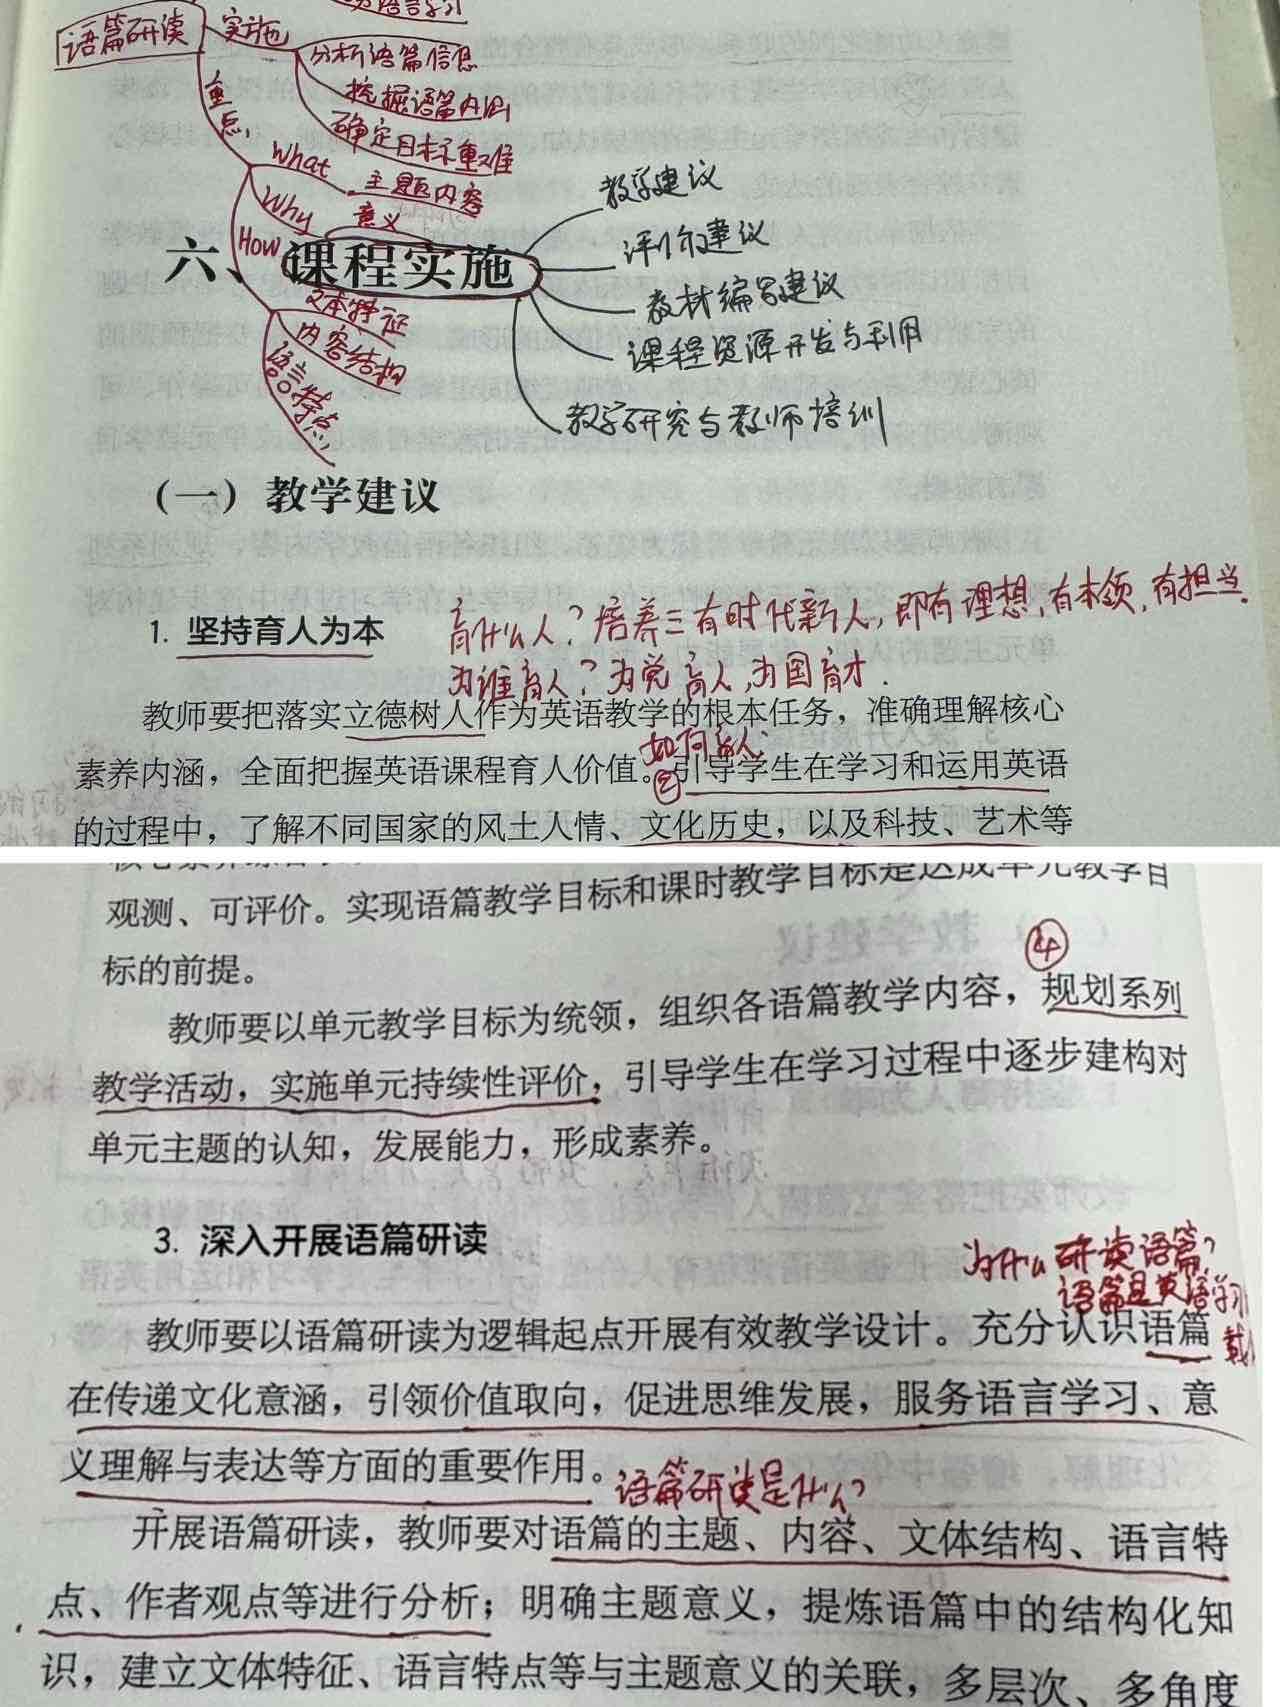 语篇研读
实施
分析语篇信息
挖掘语篇内涵
确定目标重难
重点
What
主题内容
Why
意义
How
文本特征
内容结构
语言特点
六、课程实施
教学建议
评价建议
教材编写建议
课程资源开发与利用
教学研究与教师培训
(一) 教学建议
1. 坚持育人为本
育什么人?培养三有时代新人,即有理想,有本领,有担当.
为谁育人?为党育人,为国育才.
教师要把落实立德树人作为英语教学的根本任务，准确理解核心
如何育人:
素养内涵，全面把握英语课程育人价值。②引导学生在学习和运用英语
的过程中，了解不同国家的风土人情、文化历史，以及科技、艺术等
观测、可评价。实现语篇教学目标和课时教学目标是达成单元教学目
标的前提。
④
教师要以单元教学目标为统领，组织各语篇教学内容，规划系列
教学活动，实施单元持续性评价，引导学生在学习过程中逐步建构对
单元主题的认知，发展能力，形成素养。
3. 深入开展语篇研读
为什么研读语篇?
语篇是英语学习
载
教师要以语篇研读为逻辑起点开展有效教学设计。充分认识语篇
在传递文化意涵，引领价值取向，促进思维发展，服务语言学习、意
义理解与表达等方面的重要作用。
语篇研读是什么?
开展语篇研读，教师要对语篇的主题、内容、文体结构、语言特
点、作者观点等进行分析；明确主题意义，提炼语篇中的结构化知
识，建立文体特征、语言特点等与主题意义的关联，多层次、多角度